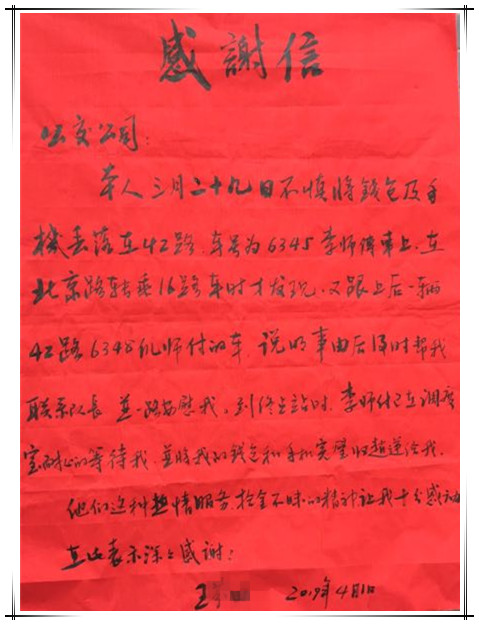 感謝信
公交公司：
本人三月二十九日不慎將钱包及手
機丢落在42路.车号为6345李师傅車上.在
北京路轉乘16路车时才发现.又跟上后一辆
42路6348仉师付的车，说明事由后及时帮我
联系队长並一路安慰我.到终点站时.李师付已在调度
室耐心的等待我.並将我的钱包和手机完璧归趙送给我.
他们这种热情服务.拾金不昧的精神让我十分感动
在此表示深深感謝：
王 2019年4月1日